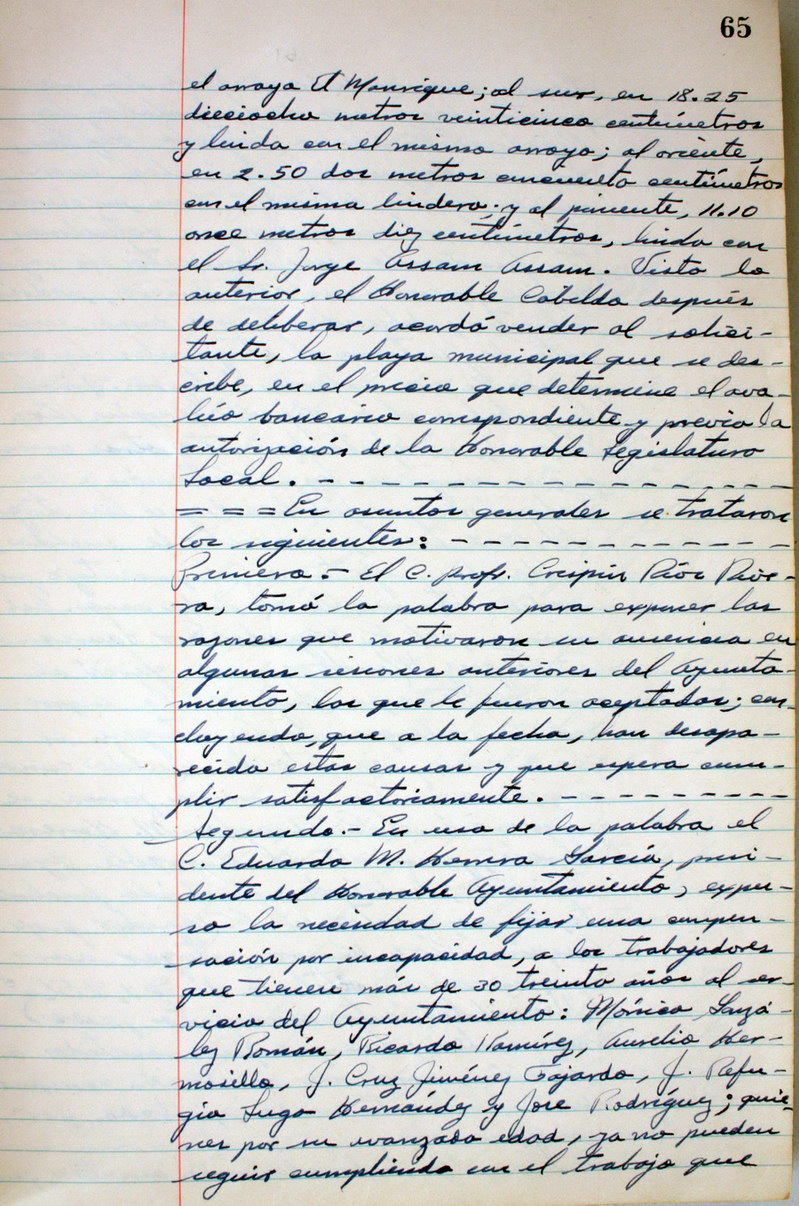 65
el arroyo El Manrique; al sur, en 18.25
dieciocho metros veinticinco centímetros
y linda con el mismo arroyo; al oriente,
en 2.50 dos metros cincuenta centímetros
con el mismo lindero; y al poniente, 11.10
once metros diez centímetros, linda con
el Sr. Jorge Assam Assam. Visto lo
anterior, el Honorable Cabildo después
de deliberar, acordó vender al solici-
tante, la playa municipal que se des-
cribe, en el precio que determine el ava-
lúo bancario correspondiente y previa la
autorización de la Honorable Legislatura
Local. - - - - - - - - - - - - - - - -
= = = En asuntos generales se trataron
los siguientes: - - - - - - - - - - - -
Primero.- El C. Profr. Crispín Ríos Rive-
ra, tomó la palabra para exponer las
razones que motivaron su ausencia en
algunas sesiones anteriores del Ayunta-
miento, las que le fueron aceptadas; con-
cluyendo, que a la fecha, han desapa-
recido estas causas y que espera cum-
plir satisfactoriamente. - - - - - - - - -
Segundo.- En uso de la palabra el
C. Eduardo M. Herrera García, presi-
dente del Honorable Ayuntamiento, expu-
so la necesidad de fijar una compen-
sación por incapacidad, a los trabajadores
que tienen más de 30 treinta años al ser-
vicio del Ayuntamiento: Mónico Gonzá-
lez Román, Ricardo Ramírez, Aurelio Her-
mosillo, J. Cruz Jiménez Fajardo, J. Refu-
gio Lugo Hernández y José Rodríguez; quie-
nes por su avanzada edad, ya no pueden
seguir cumpliendo con el trabajo que